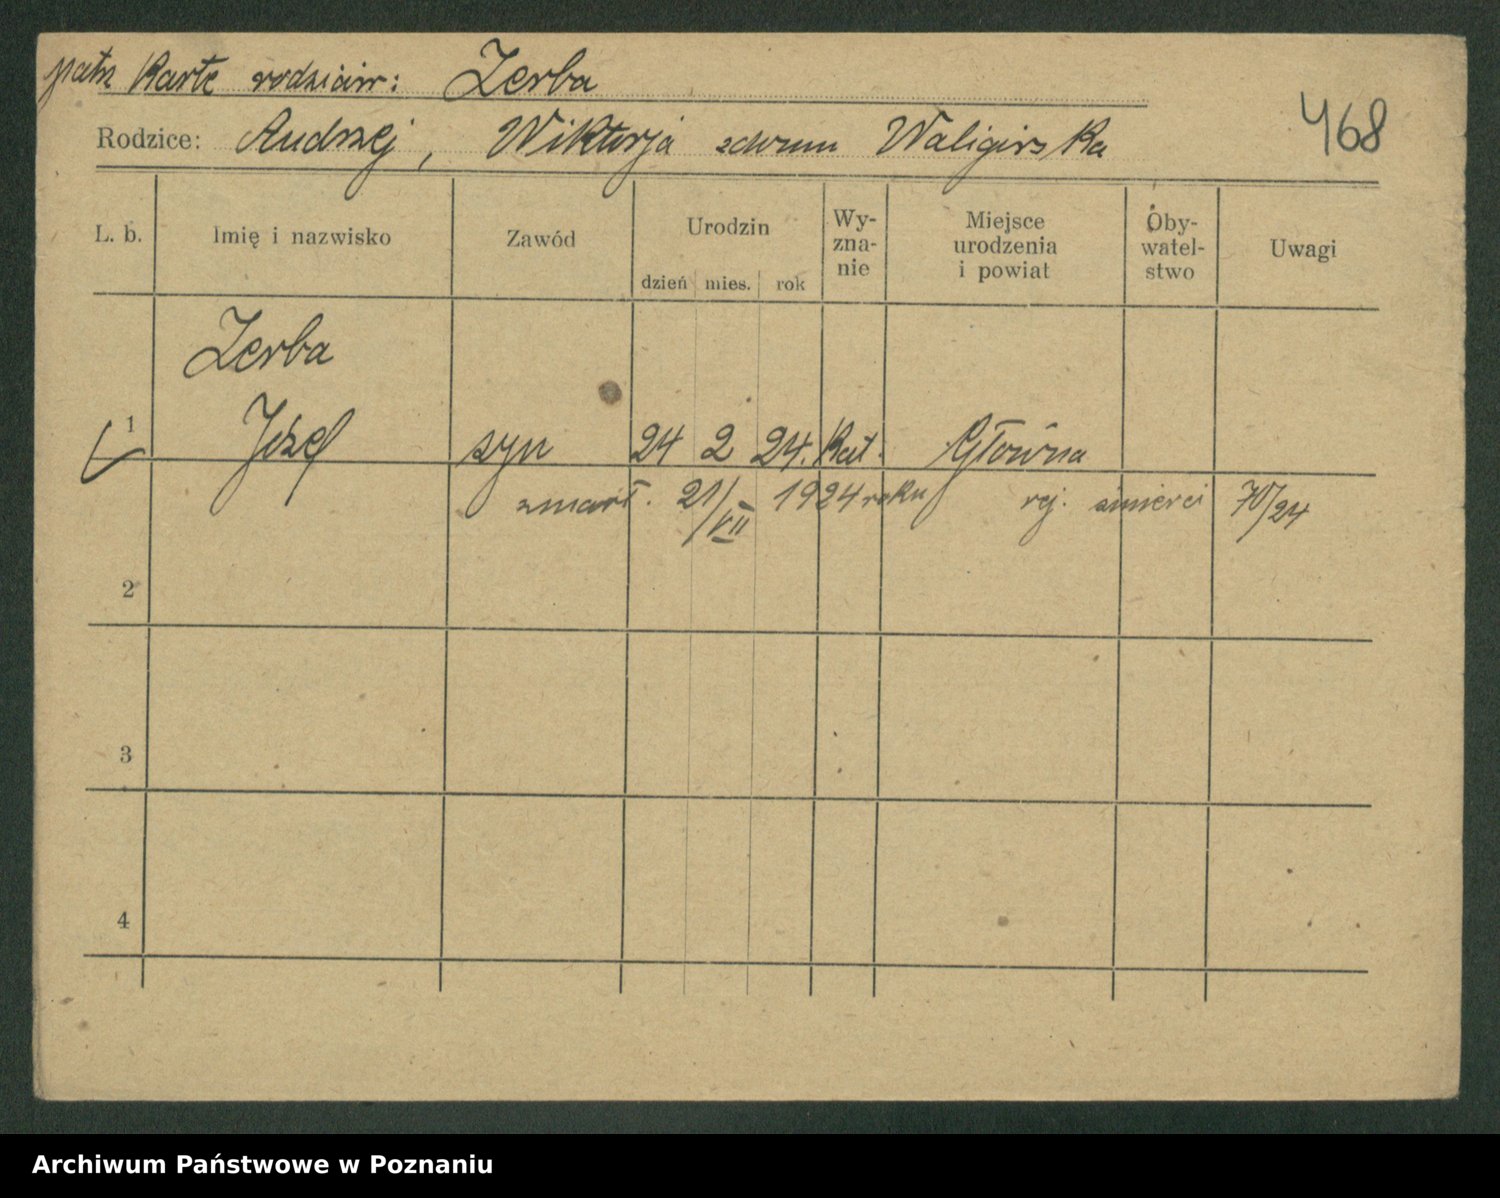 patrz Kartę rodziców: Zerba
468
Rodzice: Andrzej, Wiktorja Waligórska
L. b. Imię i nazwisko Zawód Urodzin dzień mies. rok Wy-zna-nie Miejsce urodzenia i powiat Oby-watel-stwo Uwagi
Zerba
1 Józef syn 24 2 24. Kat. Główna
zmarł. 21/VII 1924 roku rej. śmierci 70/24
2
3
4
Archiwum Państwowe w Poznaniu